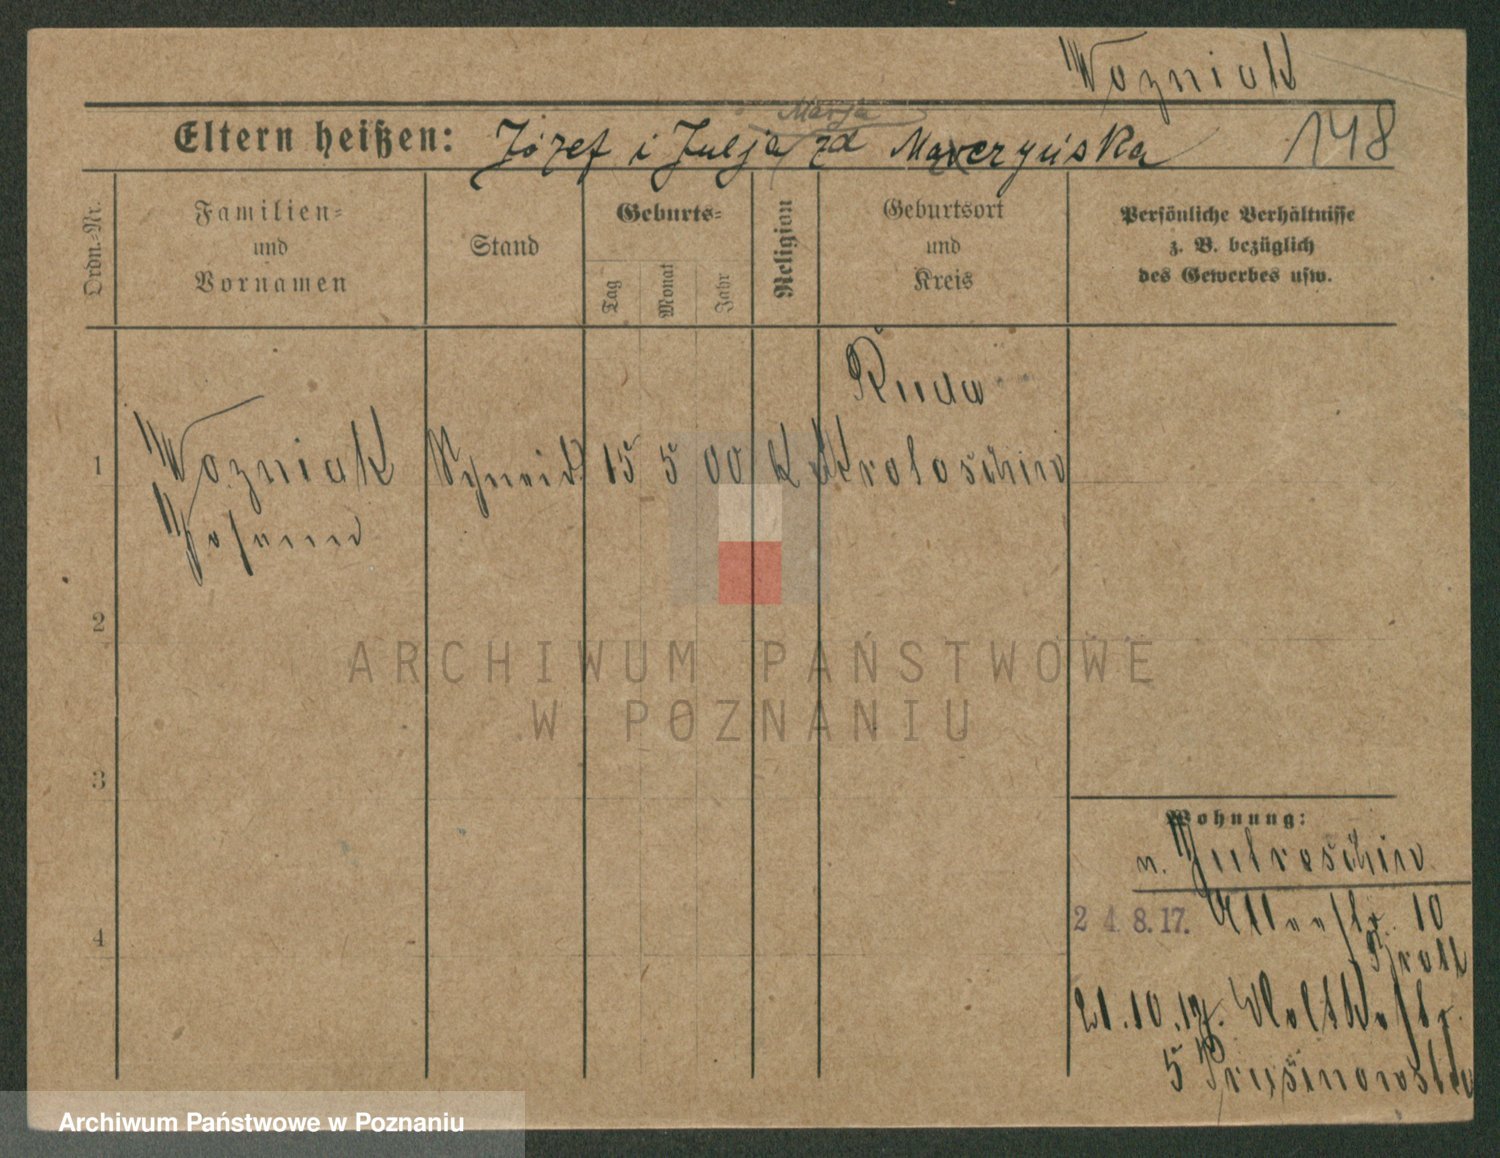 Wozniak
Marja
Eltern heißen: Józef i Julja zd
148
Ordn.-Nr.
Familien-
und
Vornamen
Stand
Geburts-
Tag
Monat
Jahr
Religion
Geburtsort
und
Kreis
Persönliche Verhältnisse
z. B. bezüglich
des Gewerbes usw.
Ruda
1
Wozniak
Schneid
15
5
00
K
Krotoschin
Johann
2
ARCHIWUM PAŃSTWOWE
W POZNANIU
3
Wohnung:
n. Jutroschin
24.8.17.
10
4
21.10.17. Moltkestr.
5
Archiwum Państwowe w Poznaniu